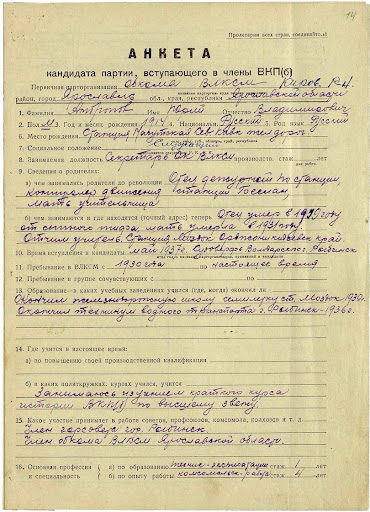 Пролетарии всех стран, соединяйтесь!
14
АНКЕТА
кандидата партии, вступающего в члены ВКП(б)
Первичная парторганизация Обкома ВЛКСМ Киров. Р-н.
район, город Ярославль обл., края, республики Ярославской области
1. Фамилия Андропов Имя Юрий Отчество Владимирович
2. Пол М 3. Год и месяц рождения 1914 4. Национальн. Русский 5. Родн. яз. Русский
6. Место рождения Станция Нагутская Сев-Кавк. жел дороги
7. Социальное положение Служащий
8. Занимаемая должность Секретарь ОК ВЛКСМ производств. стаж лет
9. Сведения о родителях:
а) чем занимались родители до революции Отец дежурный по станции,
контролер движения станции Беслан,
мать учительница
б) чем занимаются и где находятся (точный адрес) теперь Отец умер в 1919 году
от сыпного тифа, мать умерла в 1931 году.
Отчим учитель. Станция Моздок Орджоникидзевск. край.
10. Время вступления в кандидаты май 1937г. Рыбинск
11. Пребывание в ВЛКСМ с 1930 года по настоящее время
12. Пребывание в группе сочувствующих с по
13. Образование—в каких учебных заведениях учился (где, когда) окончил ли
Окончил железнодорожную школу семилетку ст. Моздок 1930г.
Окончил техникум водного транспорта г. Рыбинск-1936г.
14. Где учится в настоящее время:
а) по повышению своей производственной квалификации
б) в каких политкружках, курсах учился, учится
Занимаюсь изучением краткого курса
истории ВКП(б) по высшему звену.
15. Какое участие принимает в работе советов, профсоюзов, комсомола, колхозов и т. д.
Член горсовета гор. Рыбинск.
Член обкома ВЛКСМ Ярославской области.
16. Основная профессия и специальность
а) по образованию техник-эксплоатации стаж 1 лет
б) по опыту работы комсомольск. работа стаж 4 лет